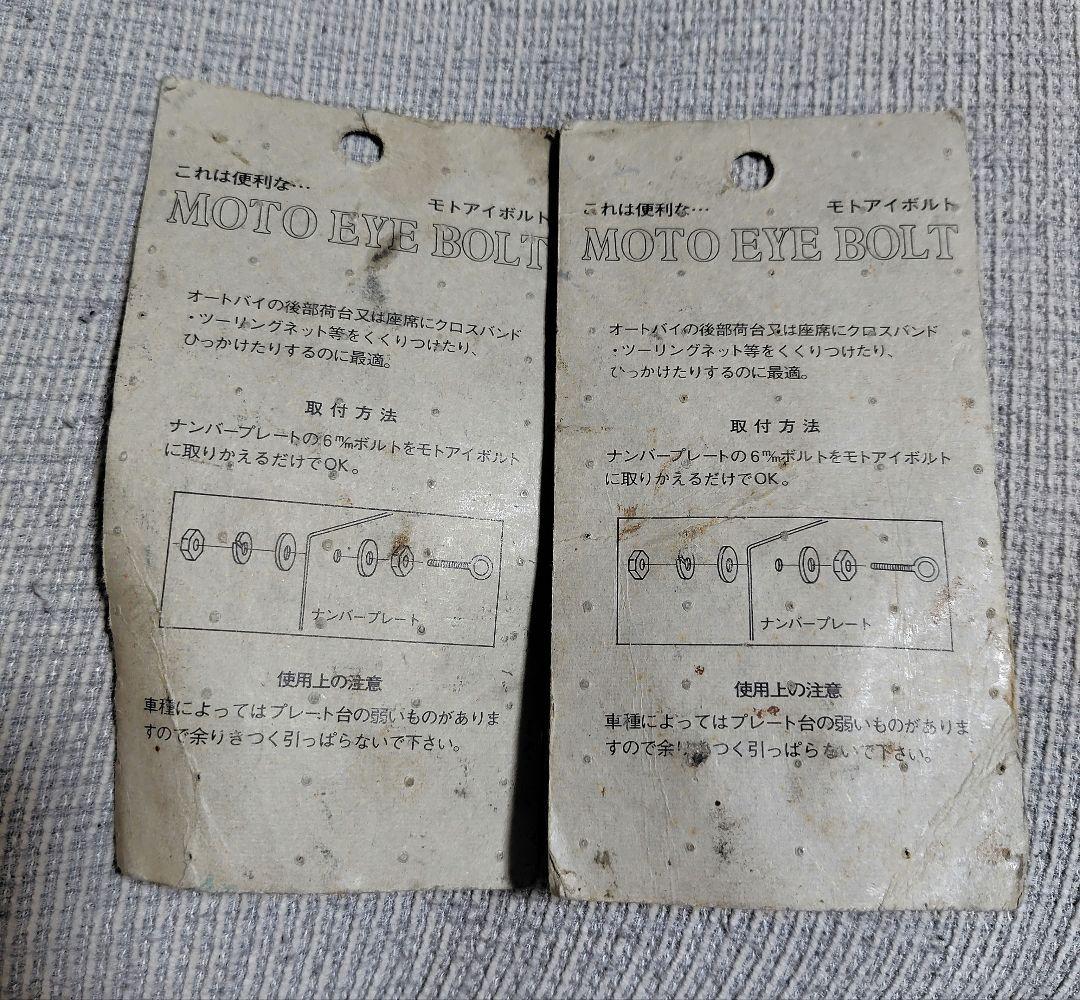 これは便利な…
モトアイボルト
MOTO EYE BOLT
オートバイの後部荷台又は座席にクロスバンド
・ツーリングネット等をくくりつけたり、
ひっかけたりするのに最適。
取付方法
ナンバープレートの6m/mボルトをモトアイボルト
に取りかえるだけでOK。
ナンバープレート
使用上の注意
車種によってはプレート台の弱いものがありま
すので余りきつく引っぱらないで下さい。
これは便利な…
モトアイボルト
MOTO EYE BOLT
オートバイの後部荷台又は座席にクロスバンド
・ツーリングネット等をくくりつけたり、
ひっかけたりするのに最適。
取付方法
ナンバープレートの6m/mボルトをモトアイボルト
に取りかえるだけでOK。
ナンバープレート
使用上の注意
車種によってはプレート台の弱いものがありま
すので余りきつく引っぱらないで下さい。